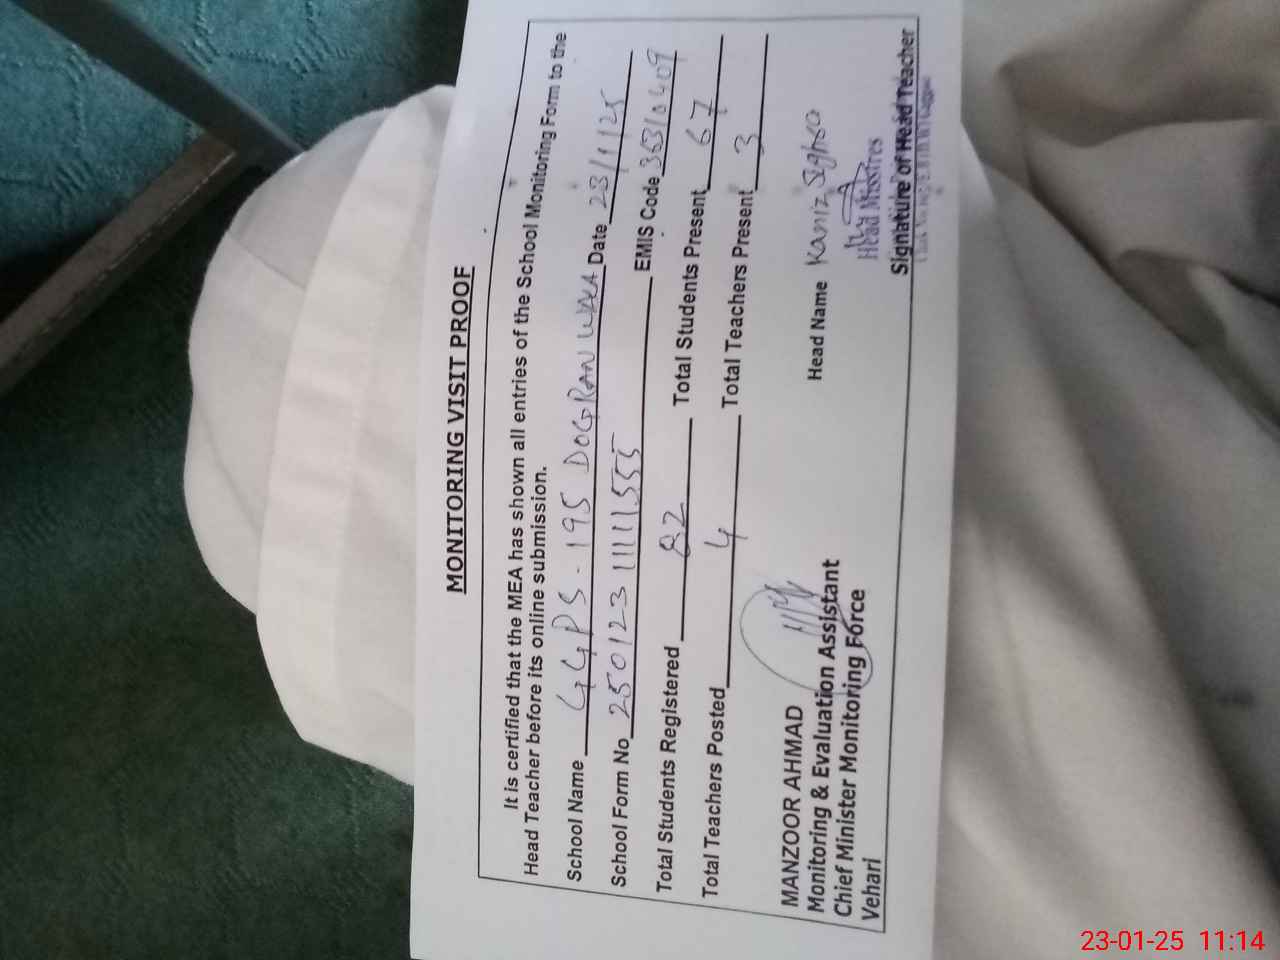 MONITORING VISIT PROOF
It is certified that the MEA has shown all entries of the School Monitoring Form to the
Head Teacher before its online submission.
School Name GGPS - 195 DOGRAN WALA Date 23/1/25
School Form No 250123 11111555 EMIS Code 36310409
Total Students Registered 82 Total Students Present 67
Total Teachers Posted 4 Total Teachers Present 3
MANZOOR AHMAD
Monitoring & Evaluation Assistant
Chief Minister Monitoring Force
Vehari
Head Name Kaniz Sughra
Head Misstres
Signature of Head Teacher
23-01-25 11:14